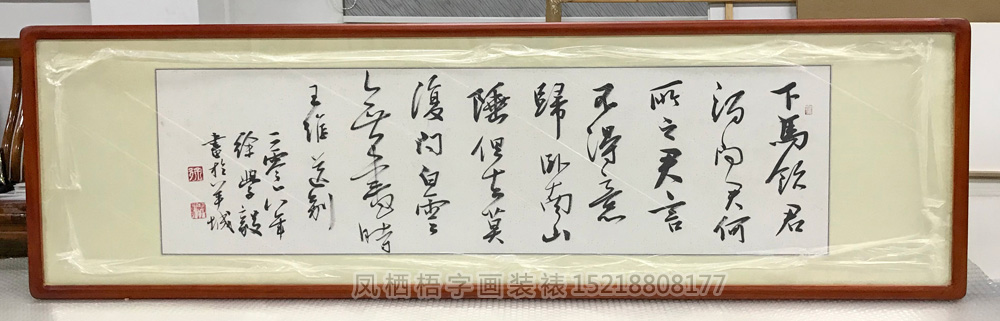 下馬飲君
酒问君何
所之君言
不得意
歸卧南山
陲但去莫
復问白雲
無盡時
王維送别
二零一八年
徐學毅
書於羊城
凤栖梧字画装裱15218808177